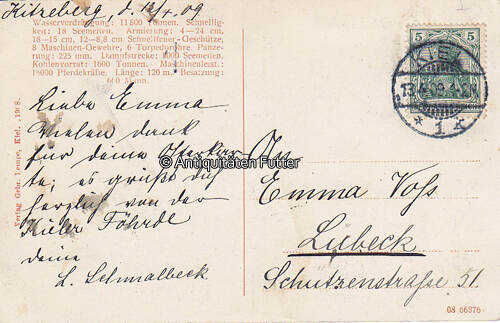 Kitzeberg, d. 12/4. 09
Wasserverdrängung: 11800 Tonnen. Schnellig-
keit: 18 Seemeilen. Armierung: 4—24 cm,
18—15 cm, 12—8,8 cm Schnellfeuer-Geschütze,
8 Maschinen-Gewehre, 6 Torpedorohre. Panze-
rung: 225 mm. Dampfstrecke: 5000 Seemeilen.
Kohlenvorrat: 1600 Tonnen. Maschinenleist.:
16000 Pferdekräfte, Länge: 120 m. Besatzung:
660 Mann.
Liebe Emma
Vielen dank
für deine Osterkar
te; es grüßt dich
herzlich von der
Kieler Föhrde
deine
L. Schmalbeck
Verlag Gebr. Lempe, Kiel. 1918.
5 5
KIEL
13.4.09
* 1 k
© Antiquitäten Futter
An
Emma Voss
Lübeck
Schützenstraße 51.
08 66376